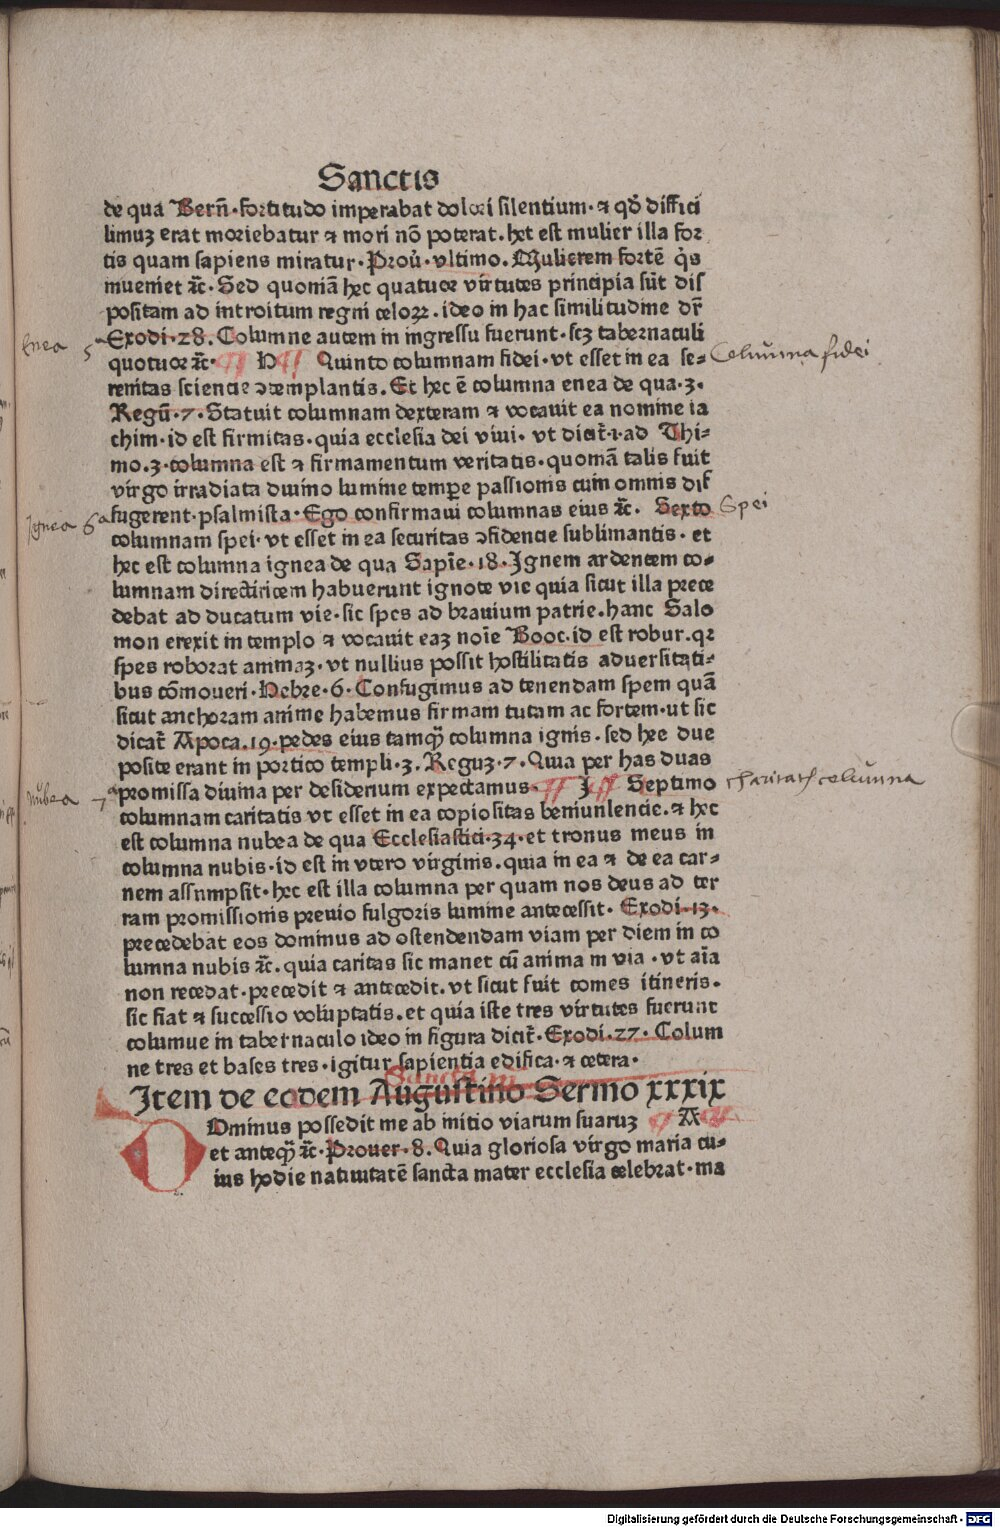 Sanctis
de qua Bern̄·fortitudo imperabat dolori silentium·⁊ qđ diffici
limuꝫ erat moriebatur ⁊ mori nō poterat.hec est mulier illa for
tis quam sapiens miratur·Prou̇·vltimo. Mulierem fortē q̇s
inueniet ⁊c̄·Sed quoniā hec quatuor virtutes principia sūt dis
positam ad introitum regni celoꝝ.ideo in hac similitudine dr̄
Exodi·28.Columne autem in ingressu fuerunt·scꝫ tabernaculi
quotuor ⁊c̄· ¶¶ H ¶¶ Quinto columnam fidei·vt esset in ea se⸗
renitas sciencie ↄtemplantis.Et hec ē columna enea de qua·3·
Regū·7·Statuit columnam dexteram ⁊ vocauit ea nomine ia
chim·id est firmitas·quia ecclesia dei viui· vt dicit̄·1·ad Thi⸗
mo.3·columna est ⁊ firmamentum veritatis·quomā talis fuit
virgo irradiata diuino lumine tempe passionis cum omnis dis
fugerent·psalmista·Ego confirmaui columnas eius ⁊c̄. Sexto
columnam spei·vt esset in ea securitas ↄfidencie sublimantis·et
hec est columna ignea de qua Sapīe·18·Ignem ardentem co⸗
lumnam directiricem habuerunt ignote vie quia sicut illa prece
debat ad ducatum vie·sic spes ad brauium patrie.hanc Salo
mon erexit in templo ⁊ vocauit eaꝫ noīe Booc·id est robur.qꝛ
spes roborat animaꝫ·vt nullius possit hostilitatis aduersitati⸗
bus cōmoueri·Hebre·6·Confugimus ad tenendam spem quā
sicut anchoram anime habemus firmam tutam ac fortem·ut sic
dicat̄ Apoca.19·pedes eius tamqꝫ columna ignis·sed hee due
posite erant in portico templi·3·Reguꝫ·7·Quia per has duas
promissa diuina per desiderium expectamus· ¶¶ I ¶¶ Septimo
columnam caritatis vt esset in ea copiositas beniuulencie.⁊ hec
est columna nubea de qua Ecclesiastici·34·et tronus meus in
columna nubis·id est in vtero virginis.quia in ea ⁊ de ea car⸗
nem assumpsit·hec est illa columna per quam nos deus ad ter
ram promissionis preuio fulgoris lumine antecessit· Exodi·13·
precedebat eos dominus ad ostendendam viam per diem in co
lumna nubis ⁊c̄.quia caritas sic manet cū anima in via·vt aīa
non recedat·precedit ⁊ antecedit.vt sicut fuit comes itineris.
sic fiat ⁊ successio voluptatis.et quia iste tres virtutes fuerunt
columue in tabernaculo ideo in figura dicit̄·Exodi·27·Colum
ne tres et bases tres·igitur sapientia edifica·⁊ cetera·
Item de eodem Augustino Sermo xxxix
Dominus possedit me ab initio viarum suaruꝫ ¶ A ¶
et anteqꝫ ⁊c̄·Prouer·8·Quia gloriosa virgo maria cu⸗
ius hodie natiuitatē sancta mater ecclesia celebrat·ma
Enea 5a
Columna fidei
Ignea 6a
Spei
Nubea 7a
charitatis columna
Digitalisierung gefördert durch die Deutsche Forschungsgemeinschaft - DFG